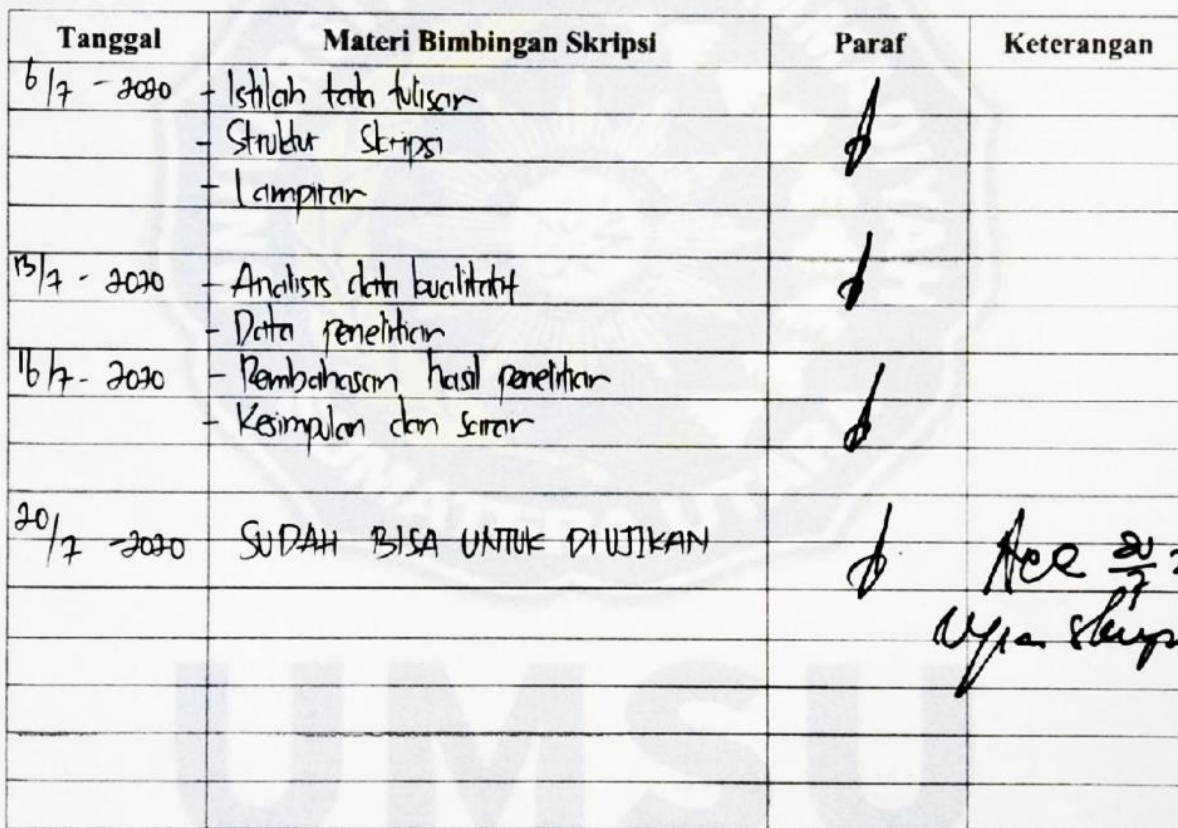 Tanggal Materi Bimbingan Skripsi Paraf Keterangan
6/7 - 2020 - Istilah tata tulisan
- Struktur Skripsi
- Lampiran
13/7 - 2020 - Analisis data kualitatif
- Data penelitian
16/7 - 2020 - Pembahasan hasil penelitian
- Kesimpulan dan saran
20/7 - 2020 SUDAH BISA UNTUK DIUJIKAN Acc 20/7
Ujian Skrips
UMSU